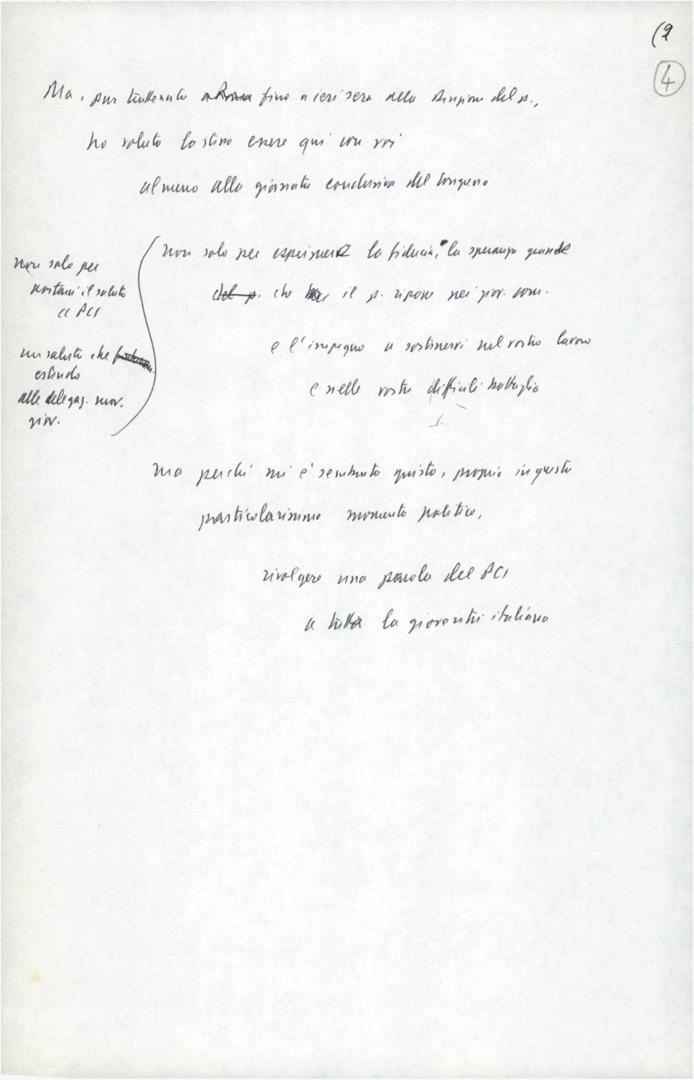 (2
4
Ma, pur trattenuto a Roma fino a ieri sera alla direzione del p.,
ho voluto lo stesso essere qui con voi
almeno alla giornata conclusiva del congresso
non solo per esprimere la fiducia, la speranza grande
del p. che il p. ripone nei giov. com.
e l'impegno a sostenervi nel vostro lavoro
e nelle vostre difficili battaglie
non solo per
portarvi il saluto
del PCI
un saluto che
estendo
alle delegaz. mov.
giov.
ma perché mi è sembrato giusto, proprio in questo
particolarissimo momento politico,
rivolgere una parola del PCI
a tutta la gioventù italiana